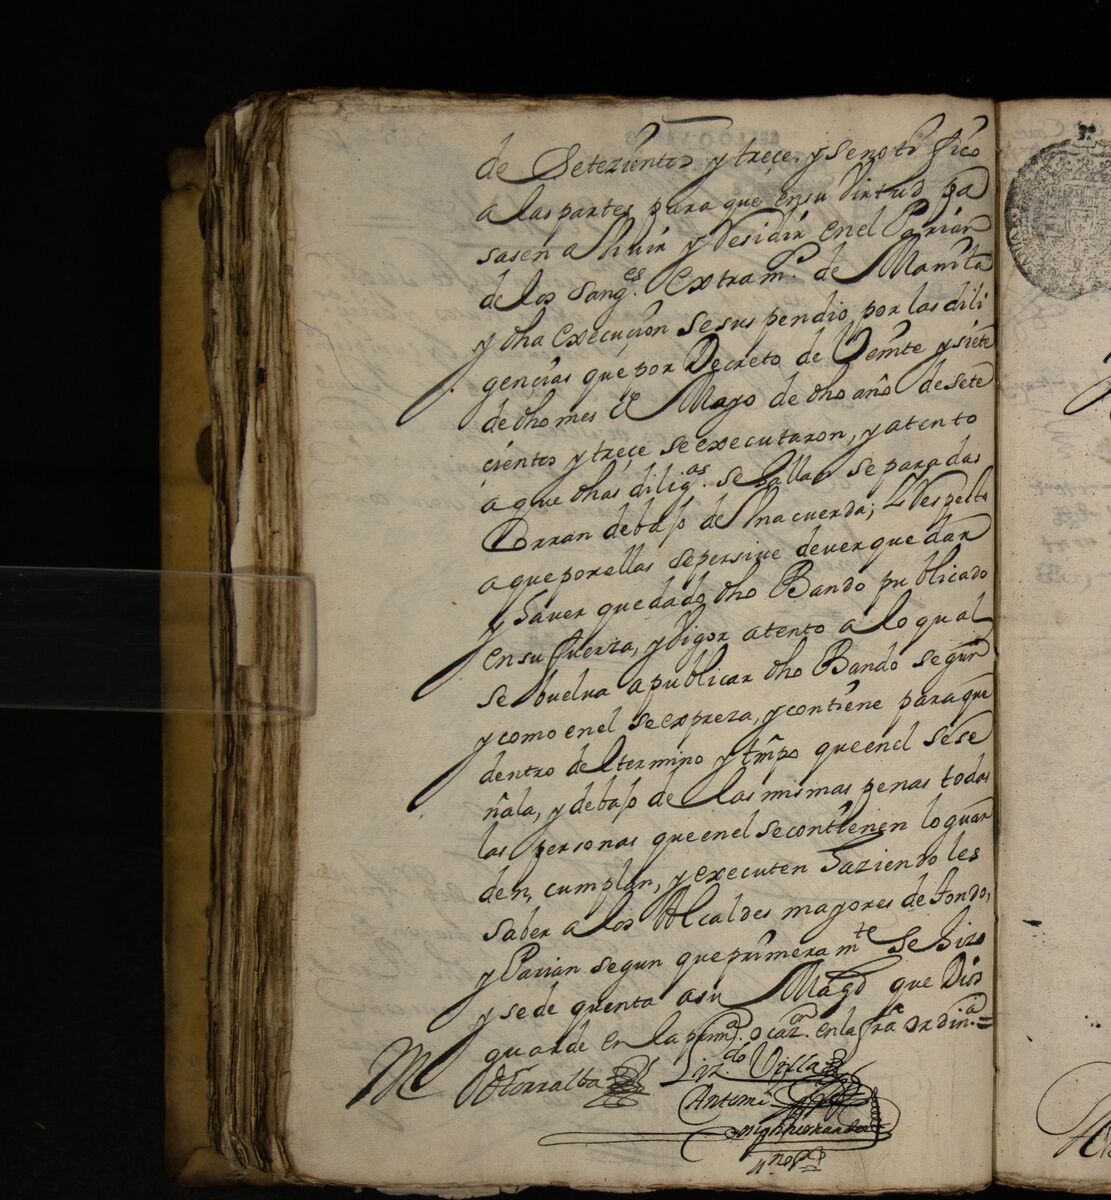 de Setezientos y treçe, y se notifico
a las partes para que en su virtud pa
sasen a viuir y residir en el Parian
de los Sang.es extram.s de Manila
y dha execuçion se suspendio por las dili
gençias que por Decreto de Veinte y siete
de dho mes de Mayo de dho año de sete
cientos y treçe se executaron, y atento
a que dhas dilig.as se hallan separadas
Corran debajo de Vna cuerda; Y respecto
a que por ellas se persive dever quedar
y haver quedado dho Bando publicado
en su fuerza, y vigor atento a lo qual
se buelva a publicar dho Bando segun
y como en el se expreza, y contiene para que
dentro del termino y tmpo que en el se se
ñala, y debajo de las mismas penas todas
las personas que en el se contienen lo guar
den, cumplan, y executen haziendoles
saber a los Alcaldes mayores de tondo,
y Parian segun que primeram.te se hizo
y se de quenta a su Magd que Dios
guarde en la prim.a ocaz.on en la fra ordin.a =
Torralba Liz.do Villa
Antemi